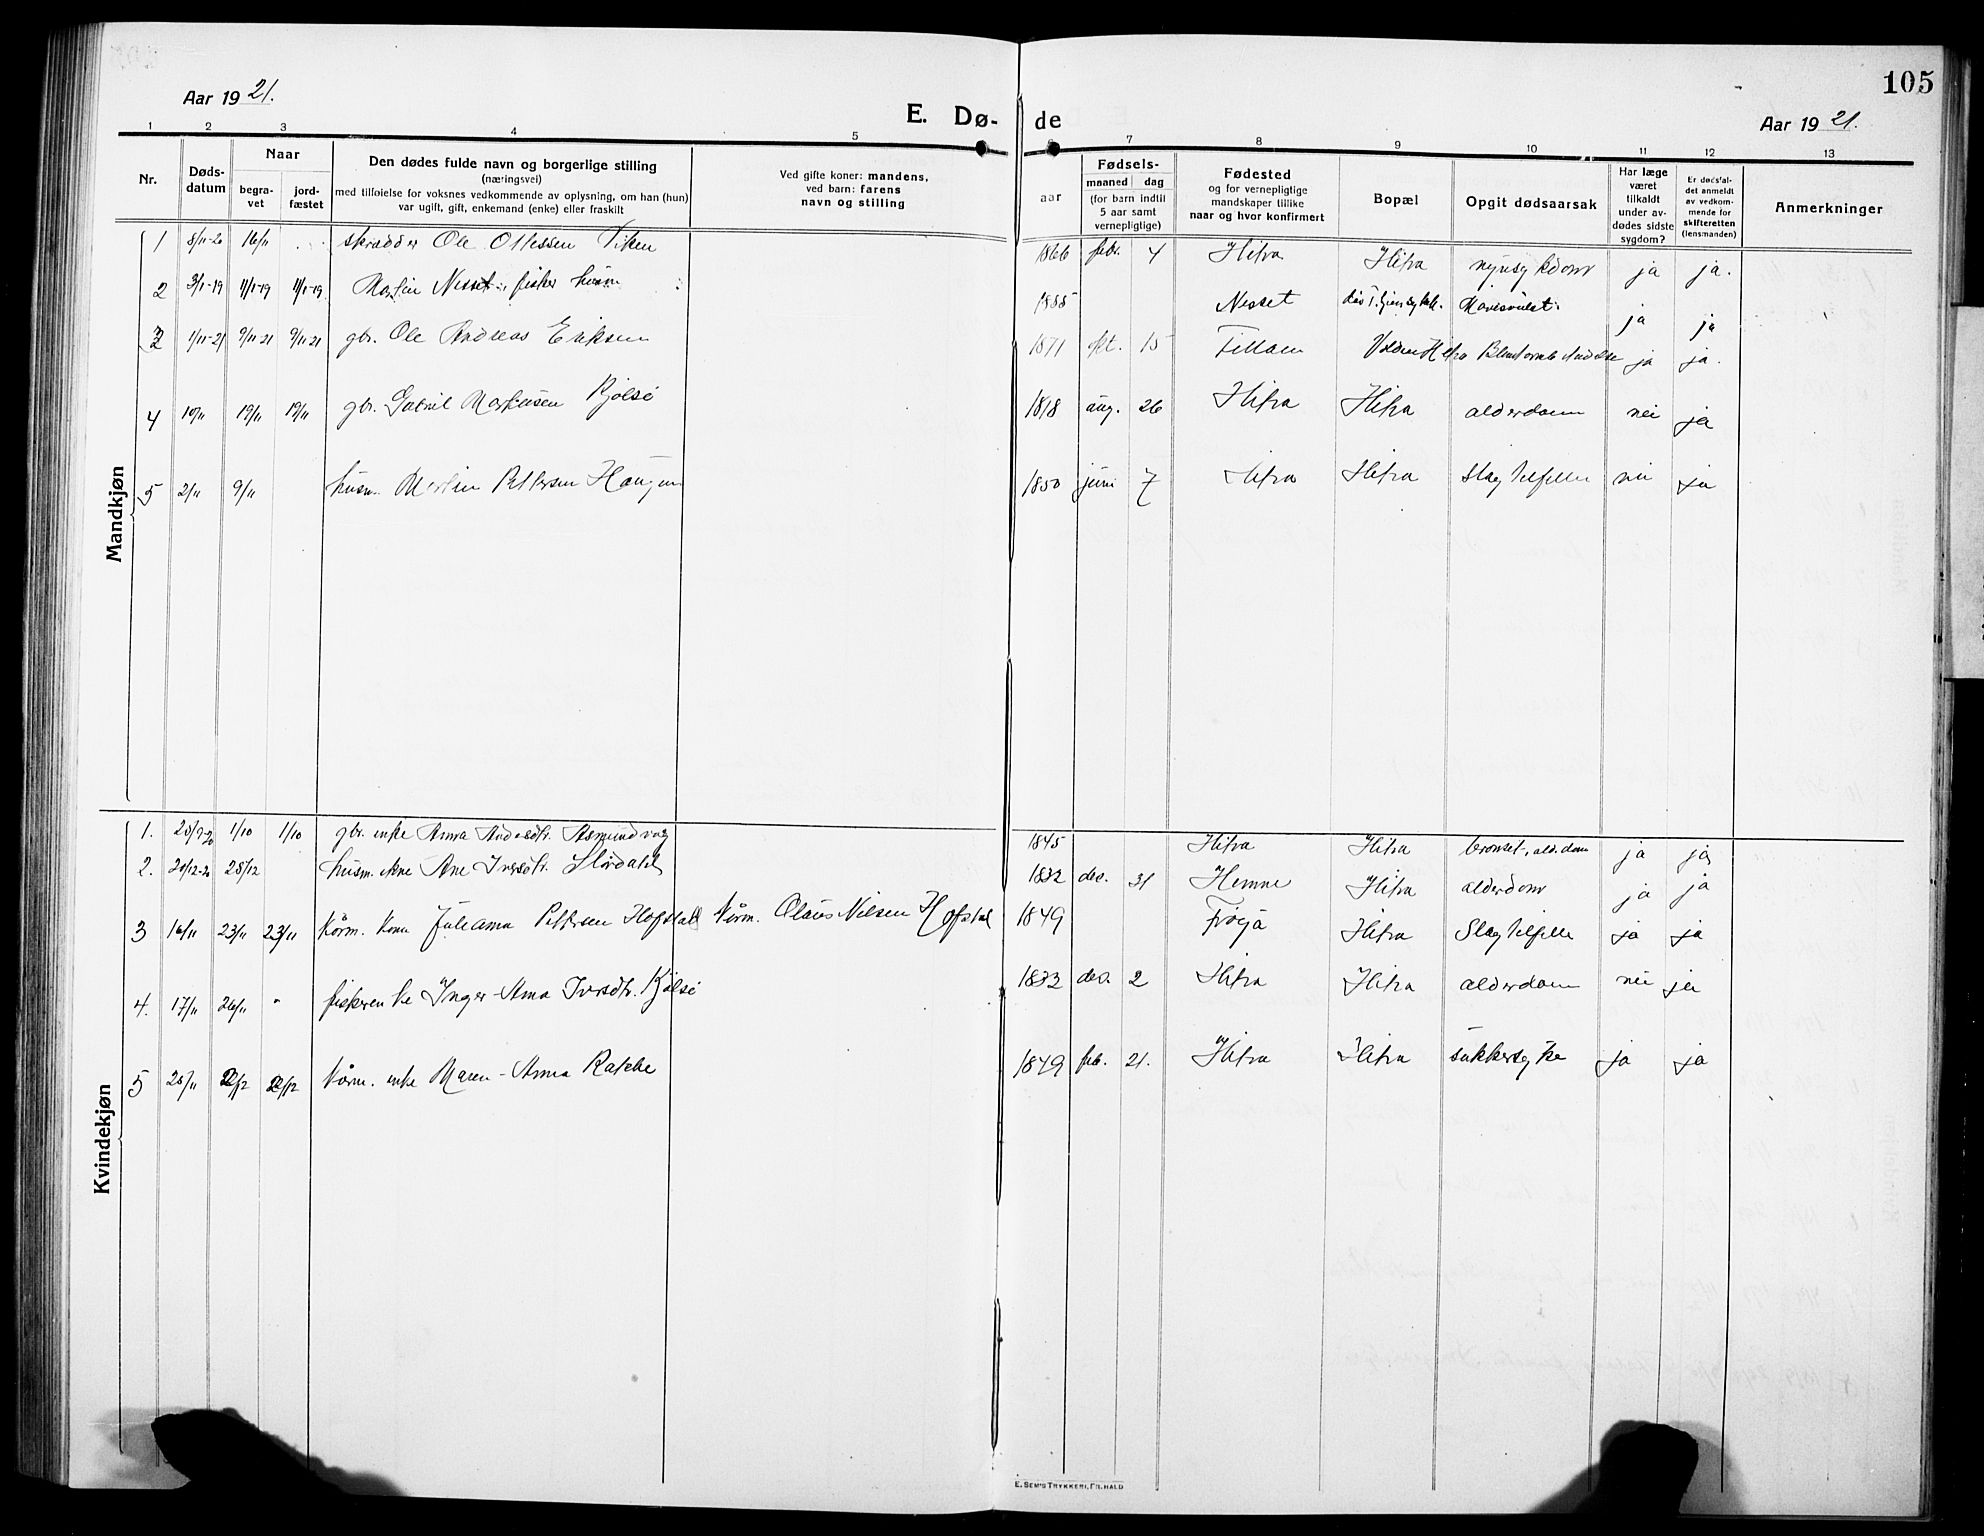 105
Aar 1921.
E. Dø- de
Aar 1921.
1 2 3 4 5 7 8 9 10 11 12 13
Nr.
Døds-
datum
Naar
begra-
vet
jord-
fæstet
Den dødes fulde navn og borgerlige stilling
(næringsvei)
med tilføielse for voksnes vedkommende av oplysning, om han (hun)
var ugift, gift, enkemand (enke) eller fraskilt
Ved gifte koner: mandens,
ved barn: farens
navn og stilling
Fødsels-
aar
maaned dag
(for barn indtil
5 aar samt
vernepligtige)
Fødested
og for vernepligtige
mandskaper tillike
naar og hvor konfirmert
Bopæl
Opgit dødsaarsak
Har læge
været
tilkaldt
under av-
dødes sidste
sygdom?
Er dødsfal-
det anmeldt
av vedkom-
mende for
skifteretten
(lensmanden)
Anmerkninger
Mandkjøn
1 8/11-20 16/11 skrædder Ole Ottessen Viken 1866 febr. 4 Hitra Hitra nyresykdom ja ja.
2 3/1-19 11/1-19 11/1-19 Martin Nesset fisker husm 1885 Nesset ja ja
3 1/11-21 9/11 21 9/11 21 gbr. Ole Andreas Eriksen 1871 okt. 15 Fillan Hitra ja ja.
4 10/11 19/11 19/11 gbr. Gabriel Martinsen Kjølsø 1818 aug. 26 Hitra Hitra alderdom nei ja
5 2/11 9/11 husm. Martin Pettersen Haugen 1850 juni 7 Hitra Hitra Slagtilfelle nei ja
Kvindekjøn
1. 1/10 1/10 gbr. enke Anna Andersdtr. Asmundvag 1845 Hitra Hitra ja ja
2. 20/12-20 28/12 husm. enke Ane Iversdtr. Størdahl 1832 dec. 31 Hemne Hitra alderdom ja ja
3 16/11 23/11 23/11 Kårm. kone Juliana Pettersen Hofstad Kårm. Claus Nilsen Hofstad 1849 Frøya Hitra Slagtilfelle ja ja
4. 17/11 26/11 " fiskerenke Inger-Anna Iversdtr. Kjølsø 1832 des. 2 Hitra Hitra alderdom nei ja
5 25/11 2/12 2/12 Kårm. enke Maren-Anna Ratche 1849 feb. 21. Hitra Hitra sukkersyke ja ja
E. SEM'S TRYKKERI, FR.HALD